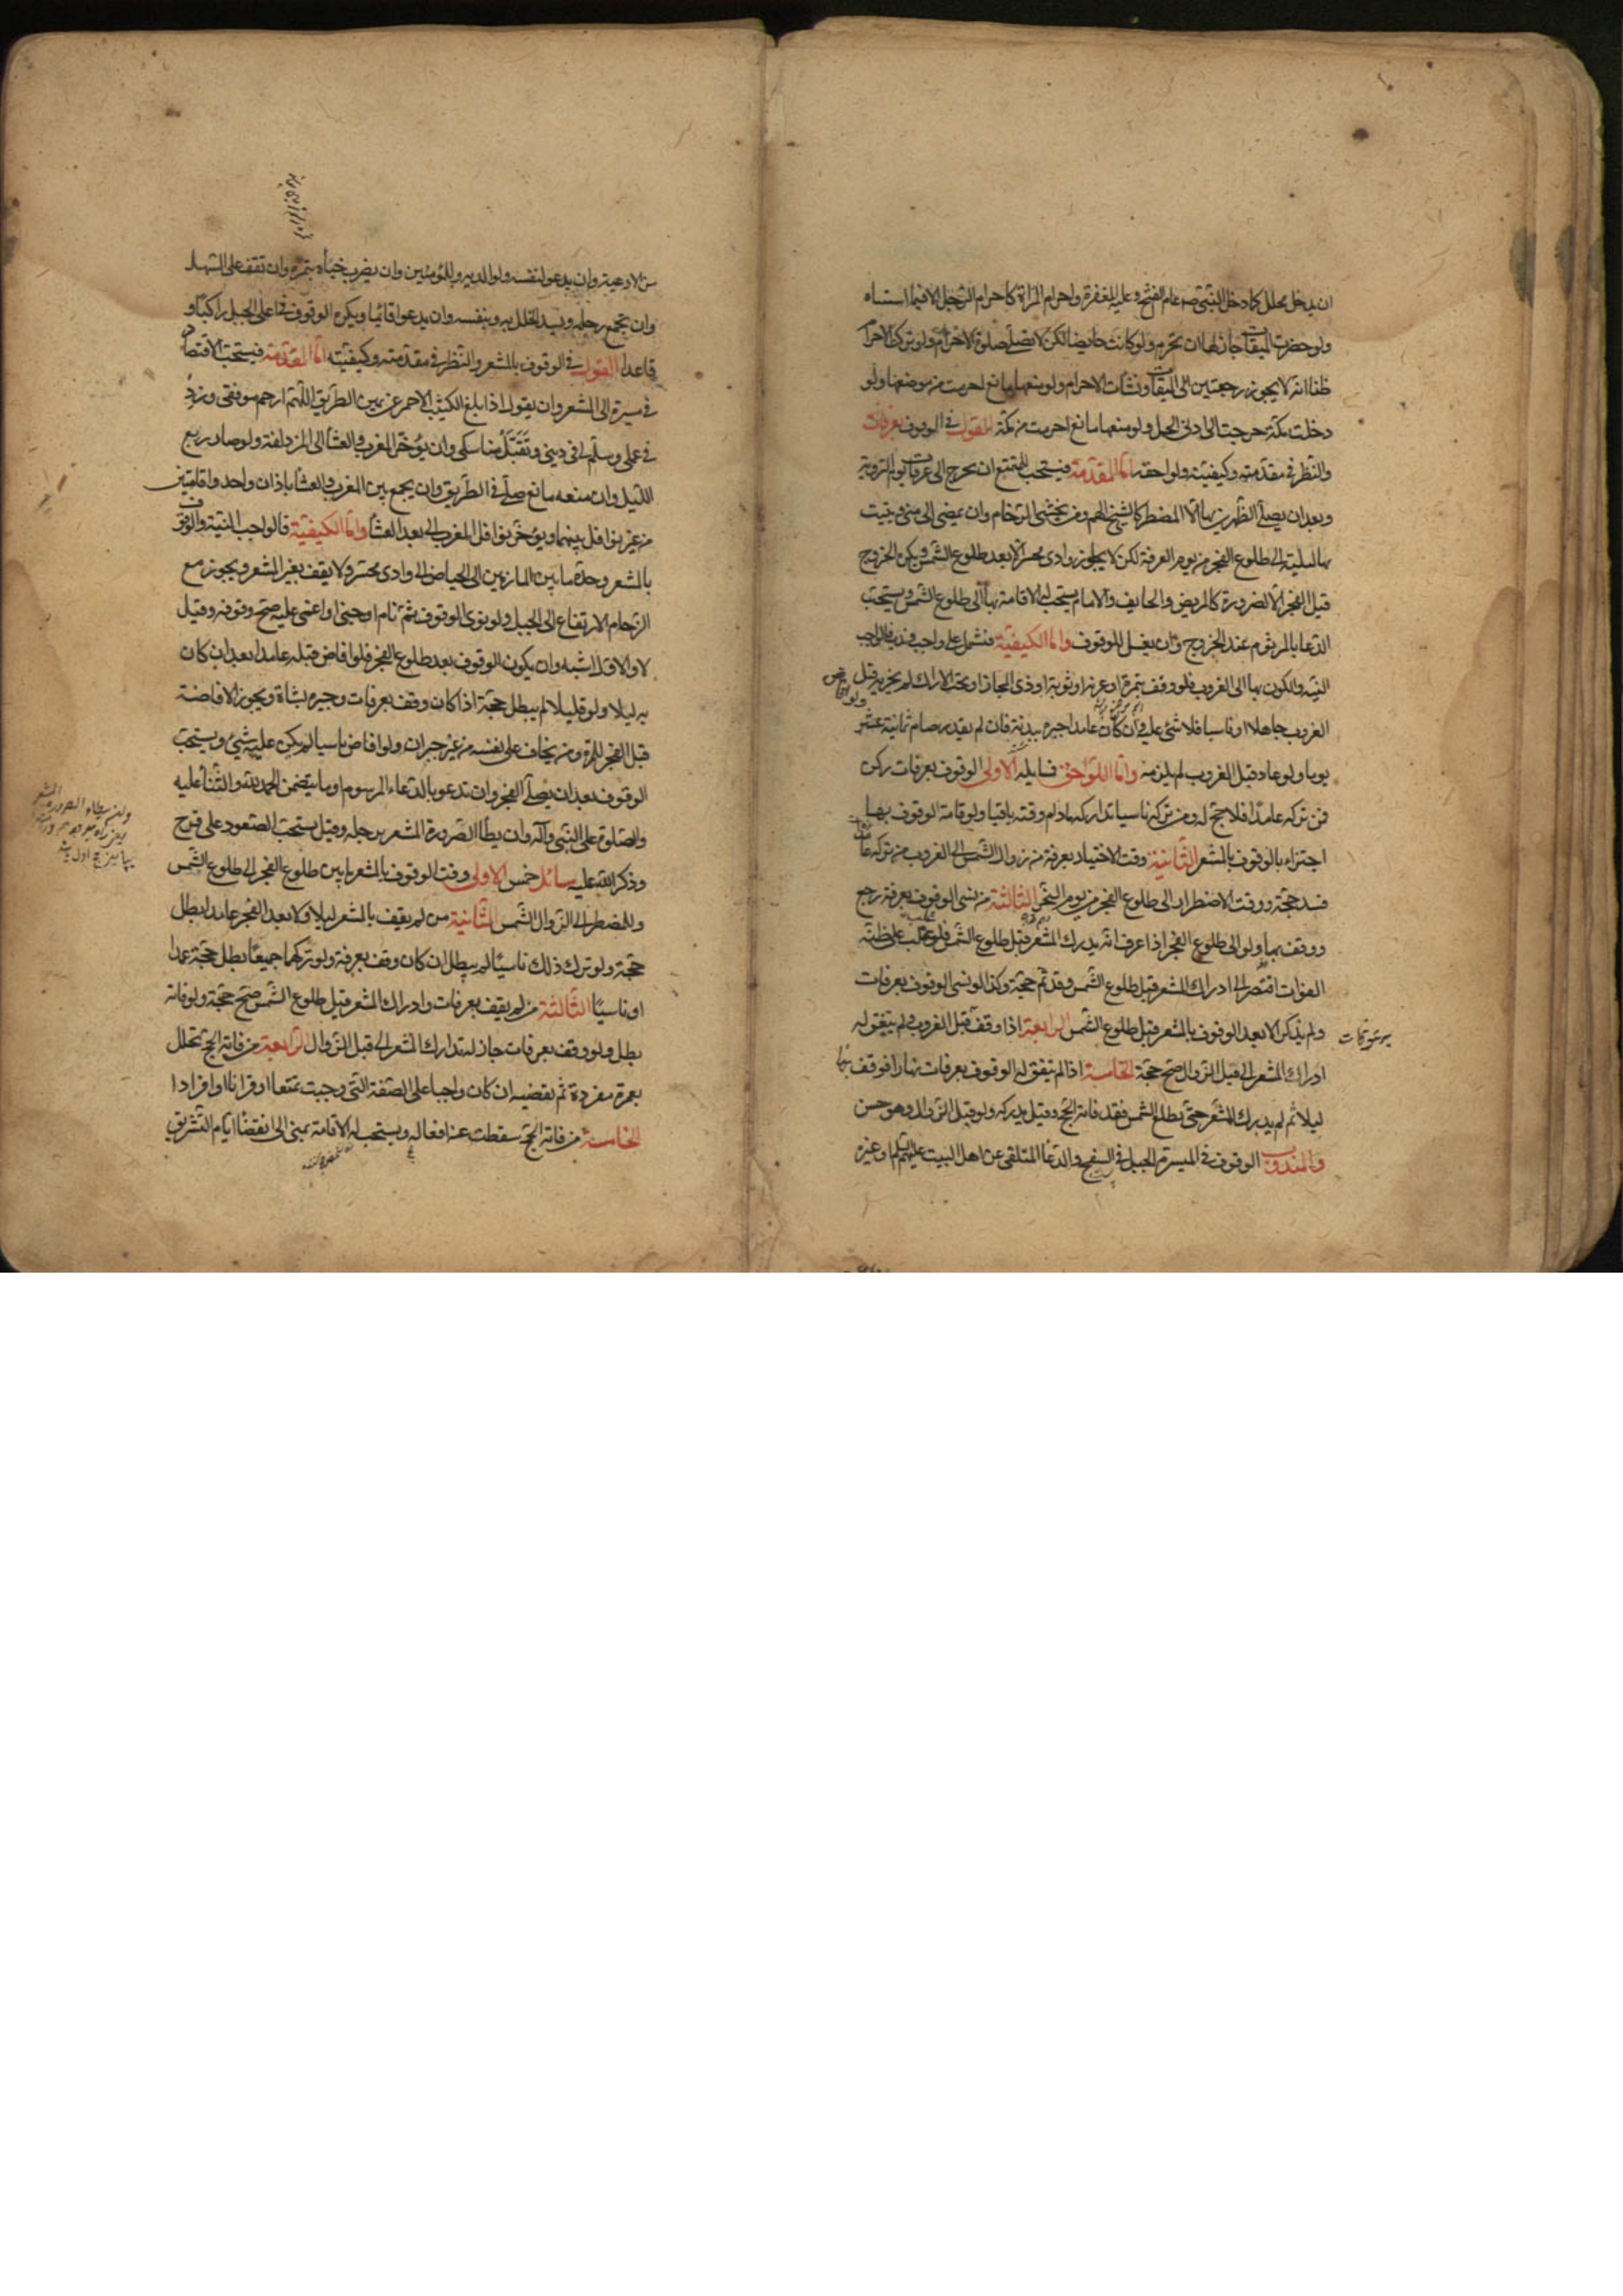 ان يدخل محلل كما دخل النبى ص عام الفتح وعليه المغفرة واحرام المراة كاحرام الرجل الا فيما استثناه
ولو حضرت الميقات جاز لها ان تحرم ولو كانت حايضا لكن لا تصلى صلوة الاحرام ولو تركت الاحرام
ظنا انه لا يجوز رجعت الى الميقات وانشأت الاحرام ولو منعها مانع احرمت من موضعها ولو
دخلت مكة خرجت الى ادنى الحل ولو منعها مانع احرمت من مكة القول فى الوقوف بعرفات
والنظر فى مقدمته وكيفيته ولواحقه اما المقدمة فيستحب للمتمتع ان يخرج الى عرفات يوم التروية
وبعد ان يصلى الظهرين بها الا المضطر كالشيخ الهم ومن يخشى الزحام وان يمضى الى منى ويبيت
بها ليلته الى طلوع الفجر من يوم العرفة لكن لا يجاوز وادى محسر الا بعد طلوع الشمس ويكره الخروج
قبل الفجر الا لضرورة كالمريض والخايف والامام يستحب له الاقامة بها الى طلوع الشمس ويستحب
الدعا بالمرسوم عند الخروج وان يغسل للوقوف واما الكيفية فتشتمل على واجب وندب فالواجب
النية والكون بها الى الغروب فلو وقف بنمرة او عرنة او ثوية او ذى المجاز او تحت الاراك لم يجزيه ولو افاض قبل
الغروب جاهلا او ناسيا فلا شئ عليه وان كان عامدا جبره ببدنة فان لم يقدر صام ثمانية عشر
يوما ولو عاد قبل الغروب لم يلزمه واما اللواحق فمسايله الاولى الوقوف بعرفات ركن
فمن تركه عامدا فلا حج له ومن تركه ناسيا تداركه مادام وقته باقيا ولو فاته الوقوف بها
اجتزاء بالوقوف بالمشعر الثانية وقت الاختيار بعرفة من زوال الشمس الى الغروب من تركه عامدا
فسد حجة ووقت الاضطرار الى طلوع الفجر من يوم النحر الثالثة من نسى الوقوف بعرفة رجع
ووقف بها ولو الى طلوع الفجر اذا عرف انه يدرك المشعر قبل طلوع الشمس فلو غلب على ظنه
الفوات اقتصر الى ادراك المشعر قبل طلوع الشمس وقد تم حجة وكذا لو نسى الوقوف بعرفات
ولم يذكر الا بعد الوقوف بالمشعر قبل طلوع الشمس الرابعة اذا وقف قبل الغروب ولم يتفق له
ادراك المشعر الى قبل الزوال صح حجة الخامسة اذا لم يتفق له الوقوف بعرفات نهارا فوقف بها
ليلا ثم لم يدرك المشعر حتى يطلع الشمس فقد فاته الحج وقيل يدركه ولو قبل الزوال وهو حسن
والمندوب الوقوف فى الميسرة الجبل فى السفح والدعا المتلقى عن اهل البيت عليهم السلم او غيره
من الادعية وان يدعو لنفسه ولوالديه وللمؤمنين وان يضرب خباه بنمرة وان تقف على السهل
وان يجمع رحله ويسد الخلل به وبنفسه وان يدعو قائما ويكره الوقوف فى اعلى الجبل راكبا و
قاعدا القول فى الوقوف بالمشعر والنظر فى مقدمته وكيفيته اما المقدمة فيستحب الاقتصاد
فى سيره الى المشعر وان يقول اذا بلغ الكثيب الاحمر عن يمين الطريق اللهم ارحم موقفى وزد
فى علمى وسلم لى دينى وتقبل مناسكى وان يؤخر المغرب والعشا الى المزدلفة ولو صار ربع
الليل وان منعه مانع صلى فى الطريق وان يجمع بين المغرب والعشا باذان واحد واقامتين
من غير نوافل بينهما ويؤخر نوافل المغرب الى بعد العشا واما الكيفية فالواجب النية والوقوف
بالمشعر وحده ما بين المازمين الى الحياض الى وادى محسر ولا يقف بغير المشعر ويجوز مع
الزحام الارتفاع الى الجبل ولو نوى الوقوف ثم نام او جن او اغمى عليه صح وقوفه وقيل
لا والاول اشبه وان يكون الوقوف بعد طلوع الفجر فلو افاض قبله عامدا بعد ان كان
به ليلا ولو قليلا لم يبطل حجة اذا كان وقف بعرفات وجبره بشاة ويجوز الافاضة
قبل الفجر للمرة ومن يخاف على نفسه من غير جبران ولو افاض ناسيا لم يكن عليه شئ ويستحب
الوقوف بعد ان يصلى الفجر وان تدعو بالدعاء المرسوم او ما يتضمن الحمد لله والثناء عليه
والصلوة على النبى وآله وان يطأ الصرورة المشعر برجله وقيل يستحب الصعود على قزح
وذكر الله عليه مسائل خمس الاولى وقت الوقوف بالمشعر ما بين طلوع الفجر الى طلوع الشمس
وللمضطر الى الزوال الشمس الثانية من لم يقف بالمشعر ليلا ولا بعد الفجر عامدا بطل
حجة ولو ترك ذلك ناسيا لم يبطل ان كان وقف بعرفة ولو تركهما جميعا بطل حجة عمدا
او ناسيا الثالثة من لم يقف بعرفات وادراك المشعر قبل طلوع الشمس صح حجة ولو فاته
بطل ولو وقف بعرفات جاز له تدارك المشعر الى قبل الزوال الرابعة من فاته الحج تحلل
بعمرة مفردة ثم يقضيه ان كان واجبا على الصفة التى وجبت تمتعا او قرانا او افرادا
الخامسة من فاته الحج سقطت عنه افعاله ويستحب له الاقامة بمنى الى انقضا ايام التشريق